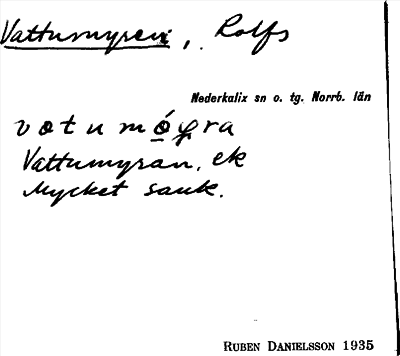 Vattumyren, Rolfs
Nederkalix sn o. tg. Norrb. län
Vattumyran, ek
Mycket sank.
RUBEN DANIELSSON 1935